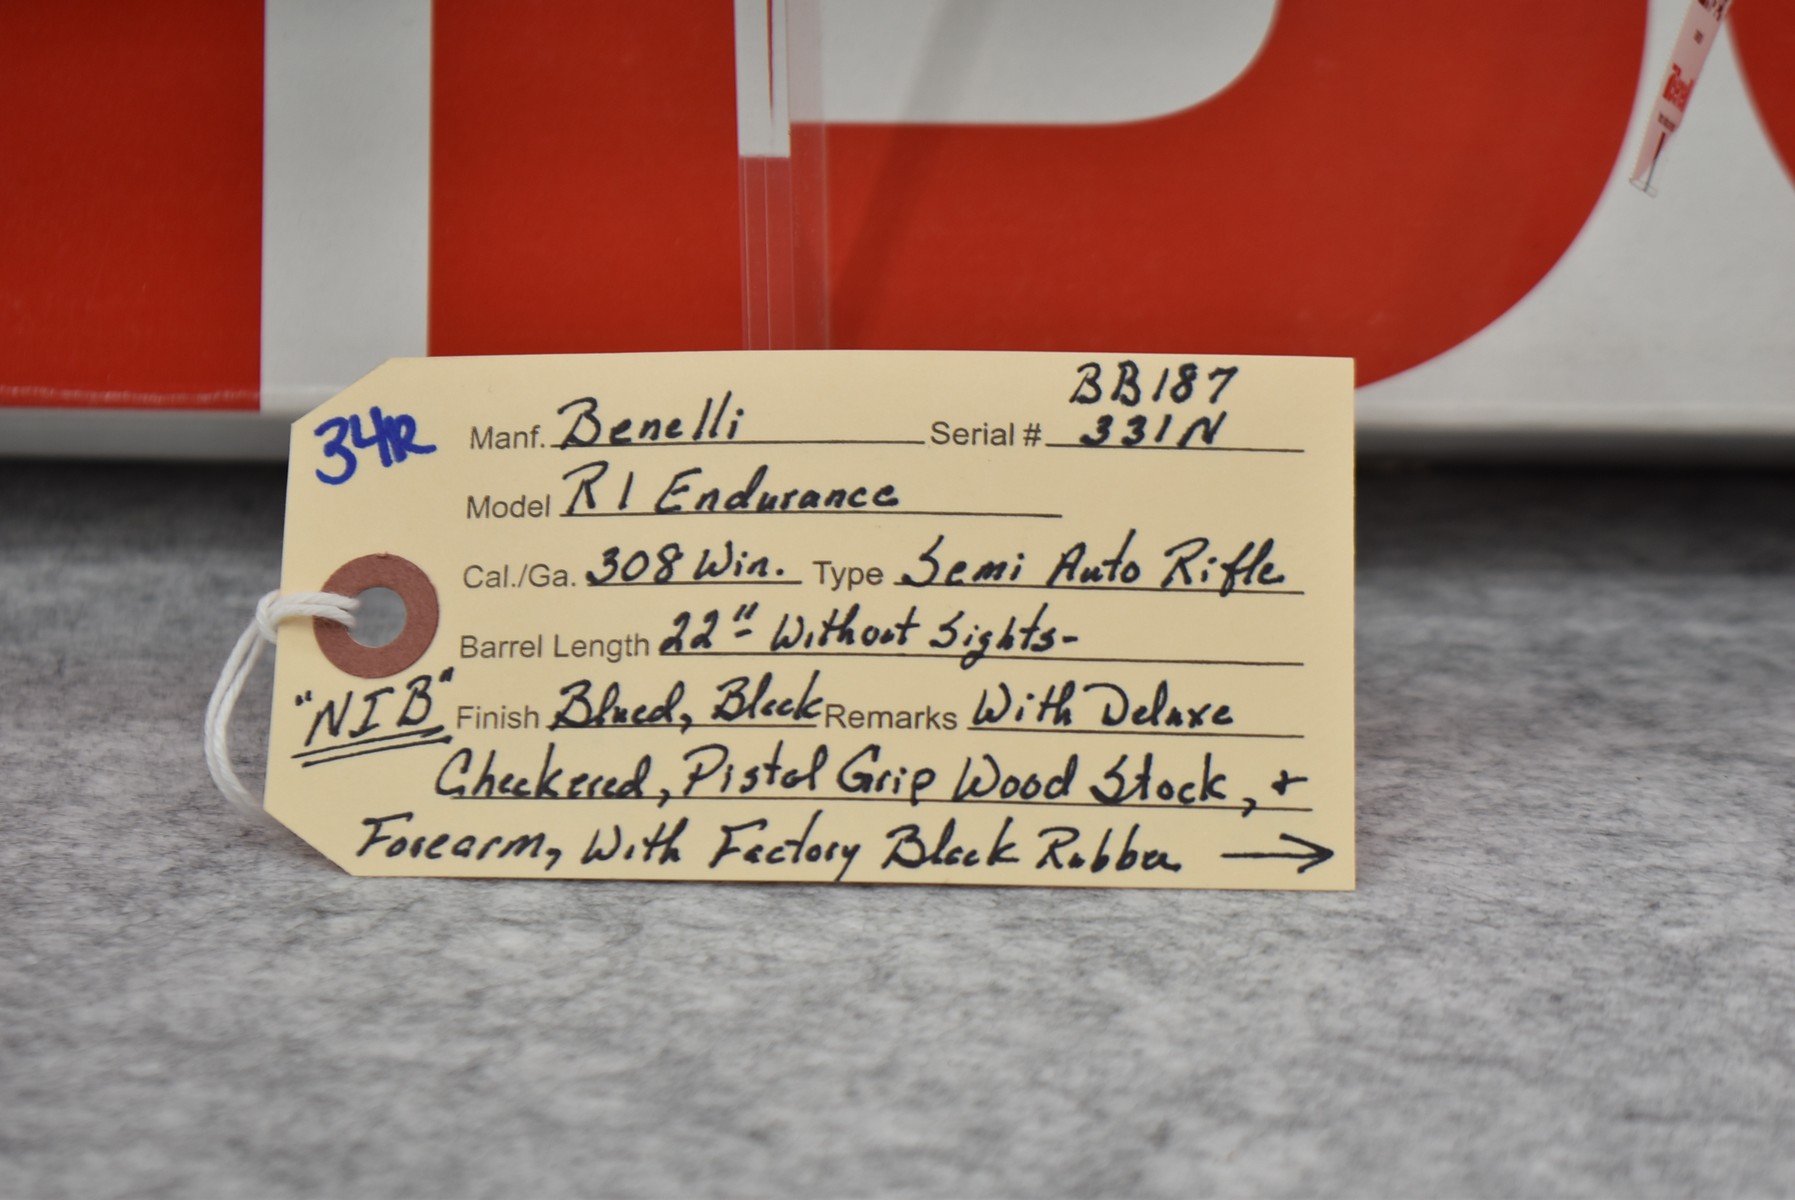 BB187
34R Manf. Benelli Serial # 331N
Model R1 Endurance
Cal./Ga. 308 Win. Type Semi Auto Rifle
Barrel Length 22" - Without Sights-
"NIB" Finish Blued, Black Remarks With Deluxe
Checkered, Pistol Grip Wood Stock, +
Forearm, With Factory Black Rubber →